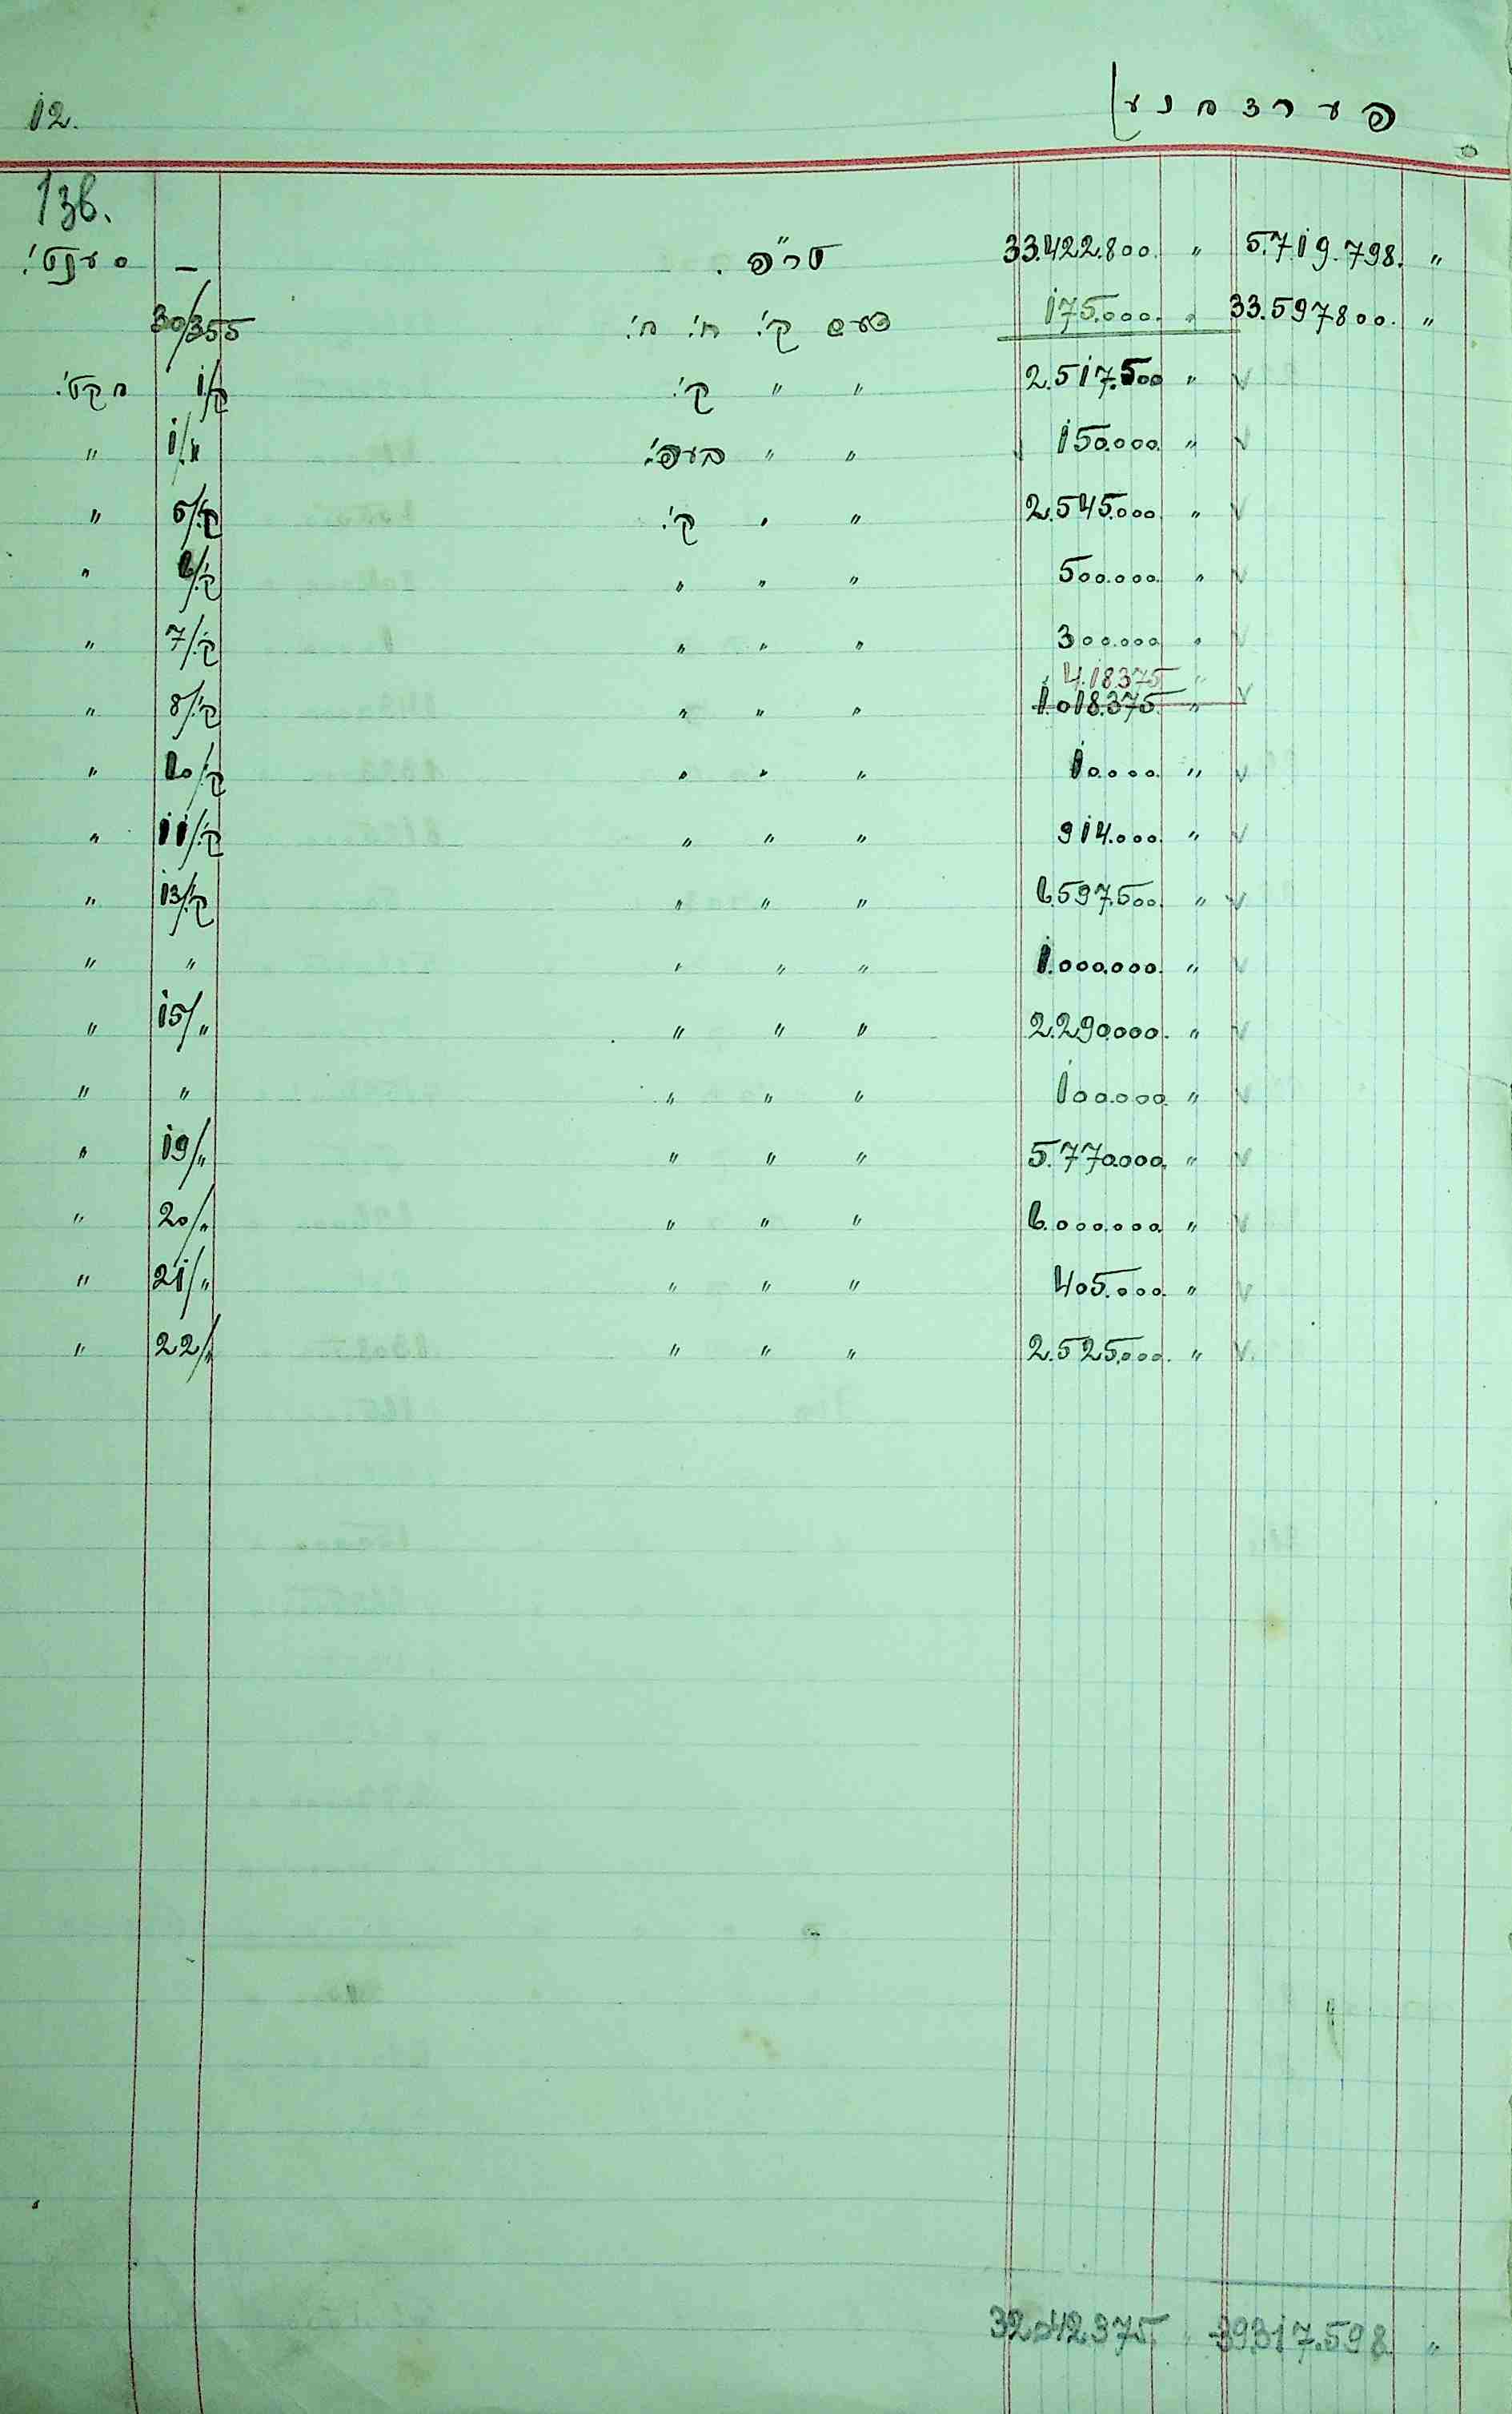 12. פערזאנען
136.
סעפט׳. — טר״פ. 33.422.800. " 5.719.798. "
30/355 פערס ק׳. ח׳. ח׳. 175.000. " 33.597800. "
אקט׳. 1/ק " " ק׳. 2.517.500 "
" 1/" " " 150.000. "
" 5/ק׳ " " ק׳. 2.545.000 "
" 6/ק׳ " " " 500.000. "
" 7/ק׳ " " " 300.000 "
4.18375 "
" 8/ק׳ " " " 1.018.375. "
" 10/ק׳ " " " 10.000. "
" 11/ק׳ " " " 914.000. "
" 13/ק׳ " " " 6.597.500. "
" " " " " 1.000.000. "
" 15/" " " " 2.290.000. "
" " " " " 100.000 "
" 19/" " " " 5.770.000. "
" 20/" " " " 6.000.000. "
" 21/" " " " 405.000. "
" 22/" " " " 2.525.000. "
32.042.375. " 39.317.598 "